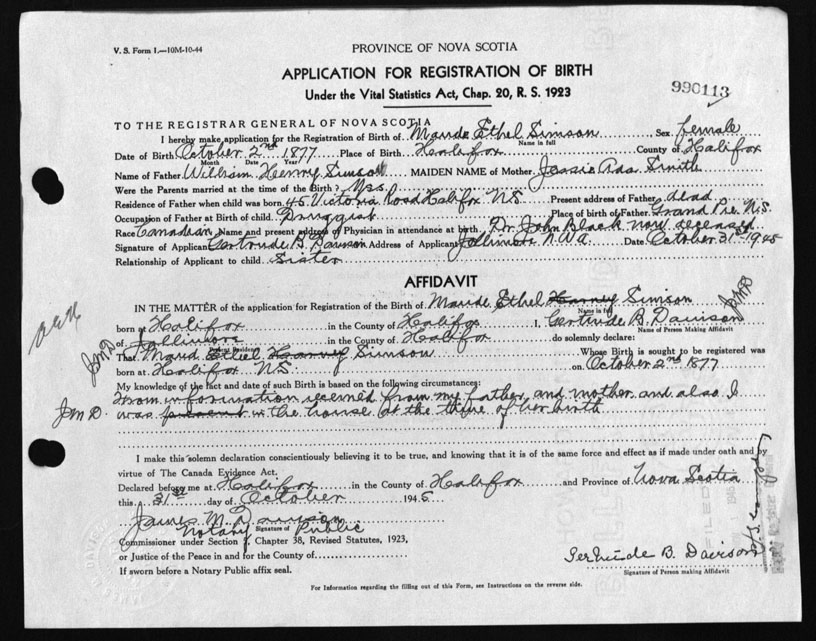 V. S. Form 1.—10M-10-44
PROVINCE OF NOVA SCOTIA
APPLICATION FOR REGISTRATION OF BIRTH
Under the Vital Statistics Act, Chap. 20, R. S. 1923
990113
TO THE REGISTRAR GENERAL OF NOVA SCOTIA
I hereby make application for the Registration of Birth of Maude Ethel Simson Sex female
Name in full
Date of Birth October 2nd 1877 Place of Birth Halifax County of Halifax
Month Date Year
Name of Father William Henry Simson MAIDEN NAME of Mother Jessie Ada Smith
Were the Parents married at the time of the Birth? Yes
Residence of Father when child was born 45 Victoria Road Halifax NS Present address of Father dead
Occupation of Father at Birth of child. Druggist Place of birth of Father Grand Pre N.S.
Race Canadian Name and present address of Physician in attendance at birth Dr. John Black now deceased
Signature of Applicant Gertrude B. Davison Address of Applicant Jollimore N.W.A. Date October 31st 1945
Relationship of Applicant to child Sister
AFFIDAVIT
IN THE MATTER of the application for Registration of the Birth of Maude Ethel Harvey Simson
Name in full
J.M.D.
born at Halifax in the County of Halifax I, Gertrude B. Davison
Name of Person making Affidavit
of Jollimore in the County of Halifax do solemnly declare:
J.M.D.
That Maud Ethel Harvey Simson Whose Birth is sought to be registered was
born at Halifax NS. on October 2nd 1877
My knowledge of the fact and date of such Birth is based on the following circumstances:
From information received from my father and mother and also I
J.M.D. was present in the house at the time of her birth
I make this solemn declaration conscientiously believing it to be true, and knowing that it is of the same force and effect as if made under oath and by
virtue of The Canada Evidence Act.
Declared before me at Halifax in the County of Halifax and Province of Nova Scotia
this 31st day of October 1945
James M. Davison
Notary Public
Signature of
Commissioner under Section 7, Chapter 38, Revised Statutes, 1923,
or Justice of the Peace in and for the County of
If sworn before a Notary Public affix seal.
Gertrude B. Davison
Signature of Person making Affidavit
For Information regarding the filling out of this Form, see Instructions on the reverse side.